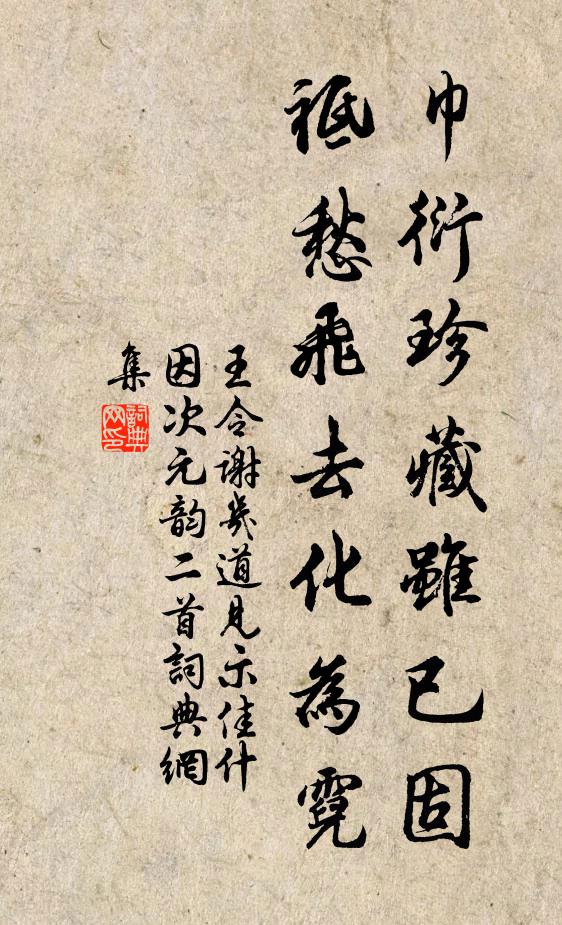 巾衍珍藏雖已固
祗愁飛去化為霓
王令謝幾道見示佳什
因次元韵二首詞典網
集
詞典
网印